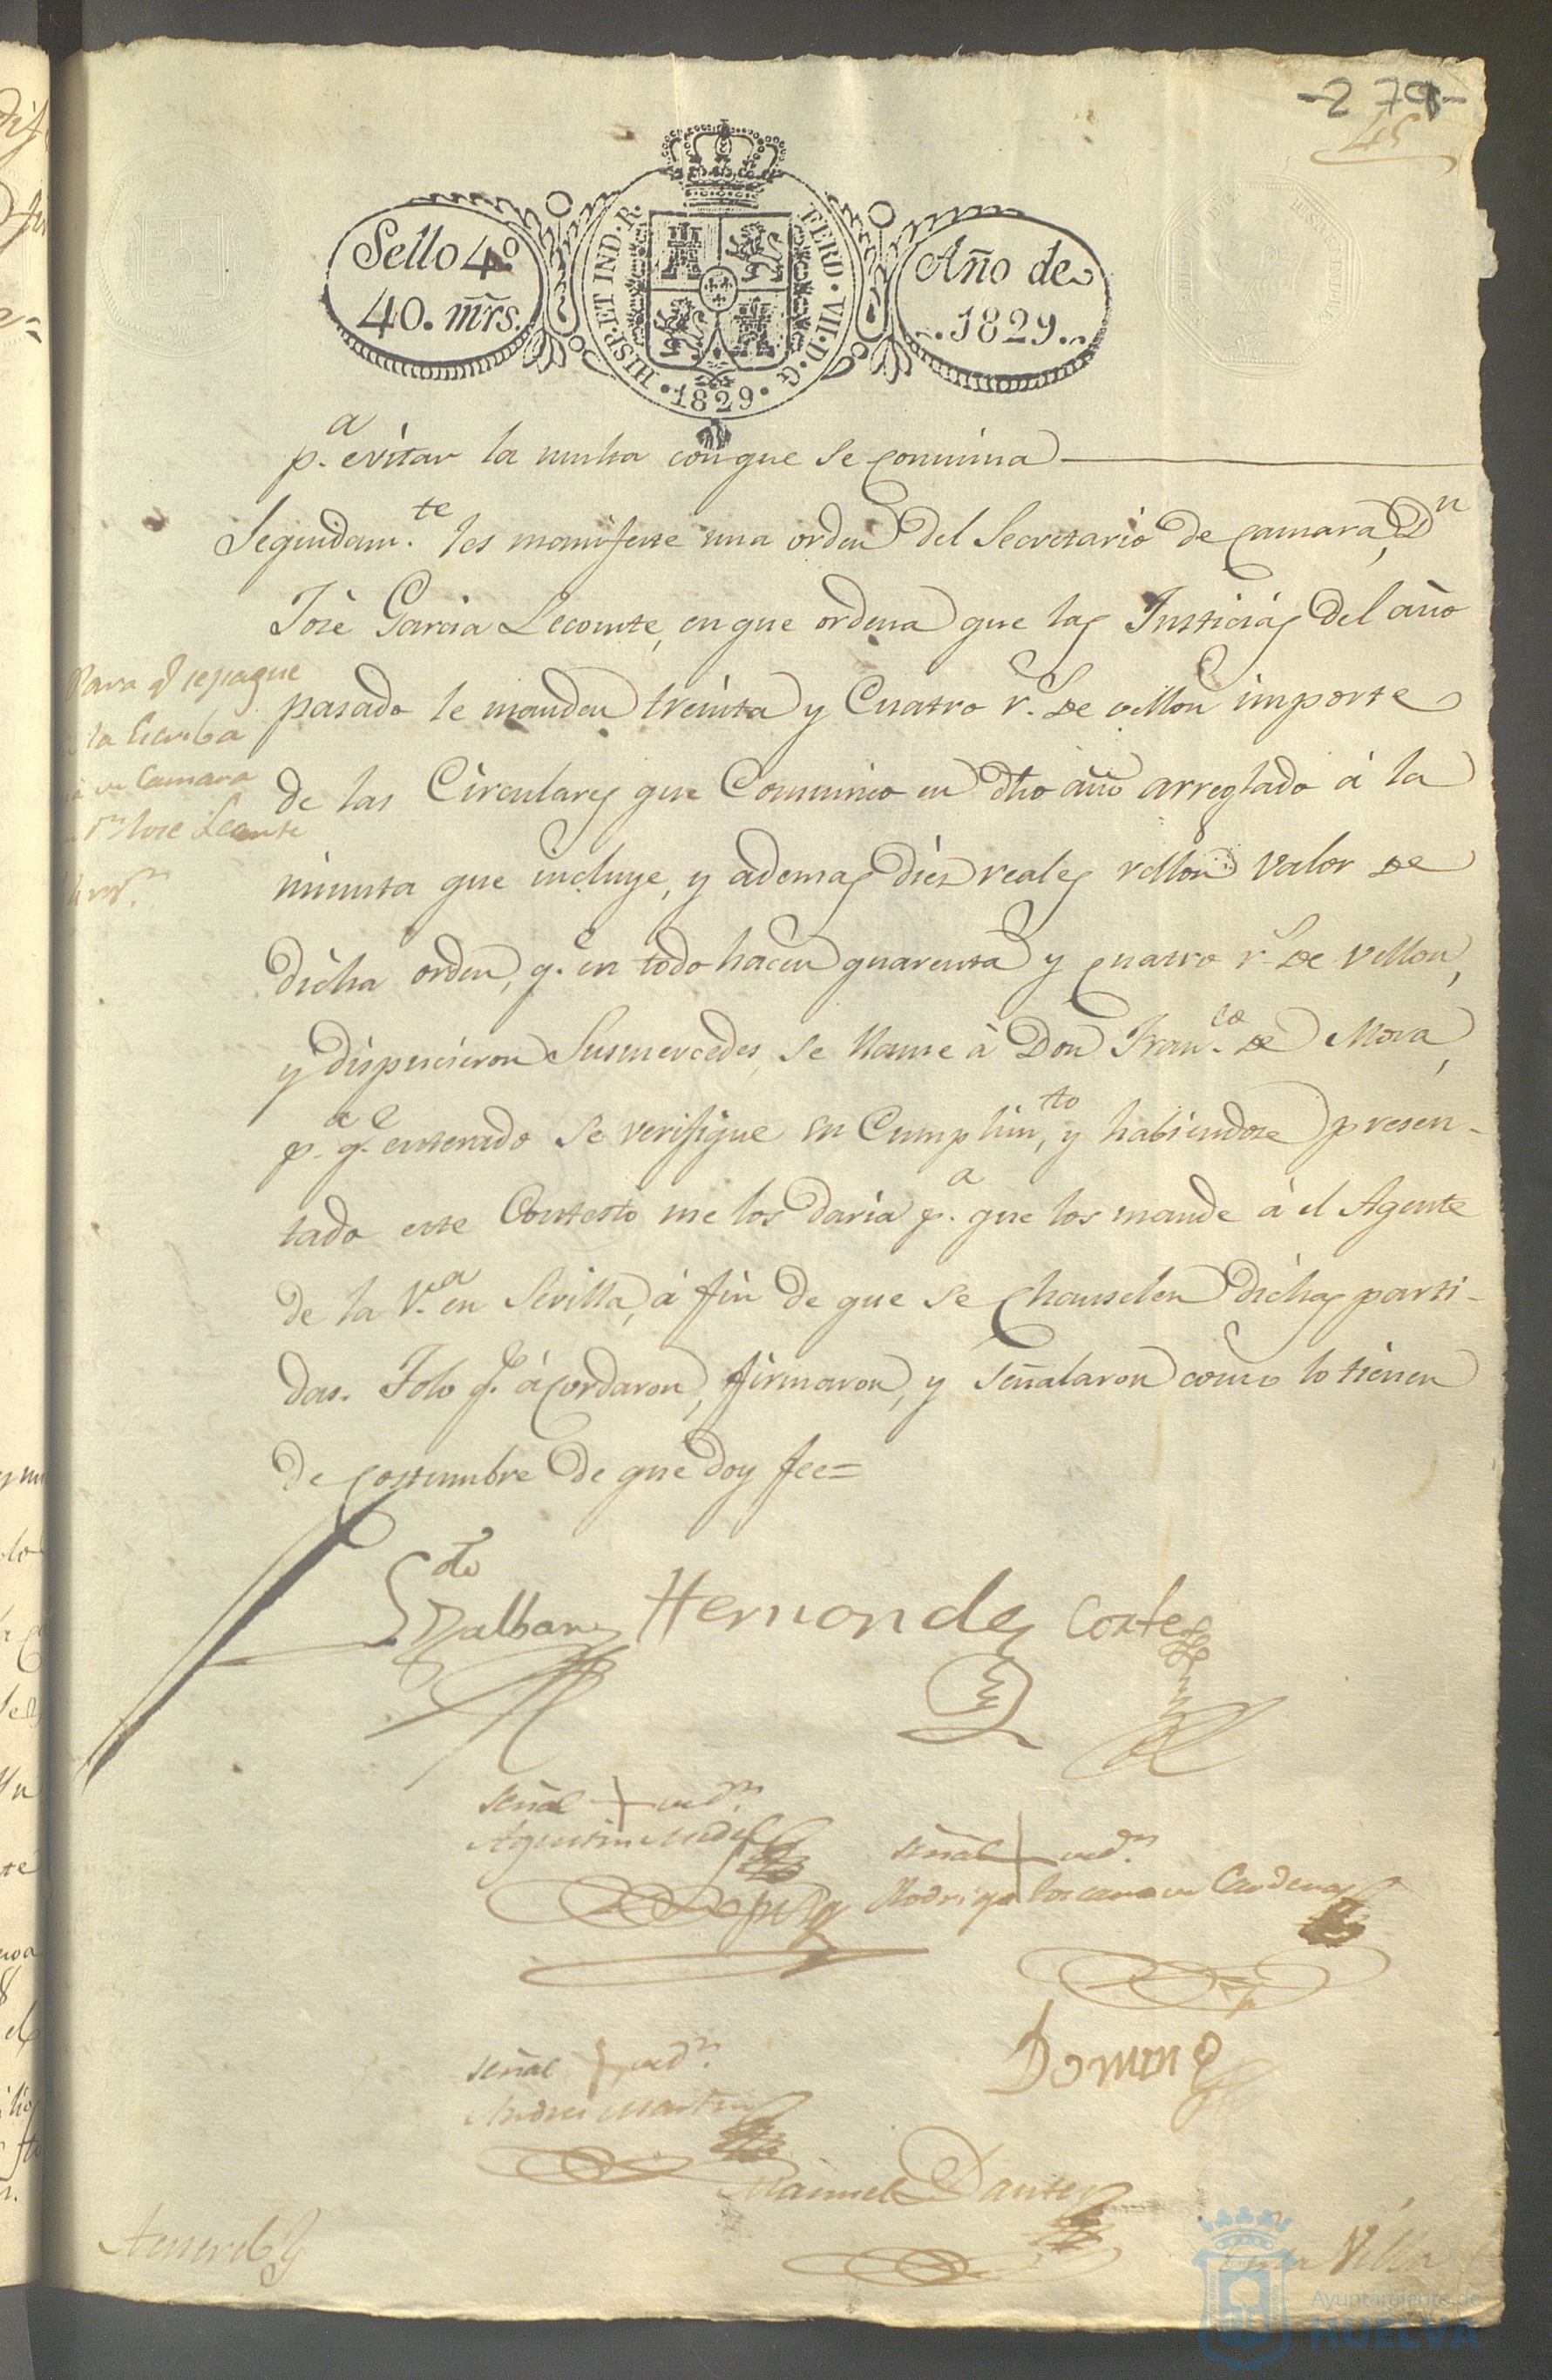 -279-
45
Sello 4º
40. mrs.
HISP. ET IND. R.
FERD. VII. D. G.
.1829.
Año de
.1829.
p.ª evitar la multa con que se comina
Seguidam.te les manifeste una orden del Secretario de Camara, Dn
Josè Garcia Lecomte, en que ordena que las Justicias del año
pasado le manden treinta y Cuatro r.s de vellon importe
de las Circulares que Comunico en dho año arreglado á la
minuta que incluye, y ademas diez reales vellon valor de
dicha orden, q.e en todo hacen quarenta y quatro r.s de vellon,
y dispusieron Susmercedes, se llame à Don Fran.co de Mora,
p.a q.e enterado se verifique su Cumplim.to, y habiendose presen-
tado este Contestó me los daria p.a que los mande á el Agente
de la V.a en Sevilla, á fin de que se chanselen dichas parti-
das. I olo q.e acordaron, firmaron, y señalaron como lo tienen
de costumbre de que doy fee=
Para q.e se pague
la Escriba
de Camara
Jose Lecomte
Hernandes Cortes
señal + de
Agustin
señal + de
Rodrigo Toscano de Cardenas
señal + de
Andres Martin
Doming
Manuel
Acuerdo
Villa
Ayuntamiento de
HUELVA